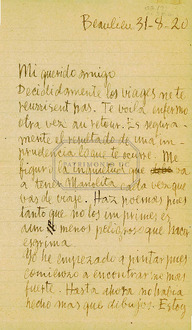 Beaulieu 31-8-20
Mi querido amigo
Decididamente les viages ne te
reussisent pas. Te voilà enfermo
otra vez au retour. Es segura-
mente el resultado de una im-
prudencia lo que te ocurre. Me
figuro la inquietud que va
a tener Manolita cada vez que
vas de viaje. Haz poemas pues
tanto que no los imprimes es
aun menos peligroso que hacer
esgrima
Yo he empezado a pintar pues
comienzo a encontrarme mas
fuerte. Hasta ahora no habia
hecho mas que dibujos. Estoy